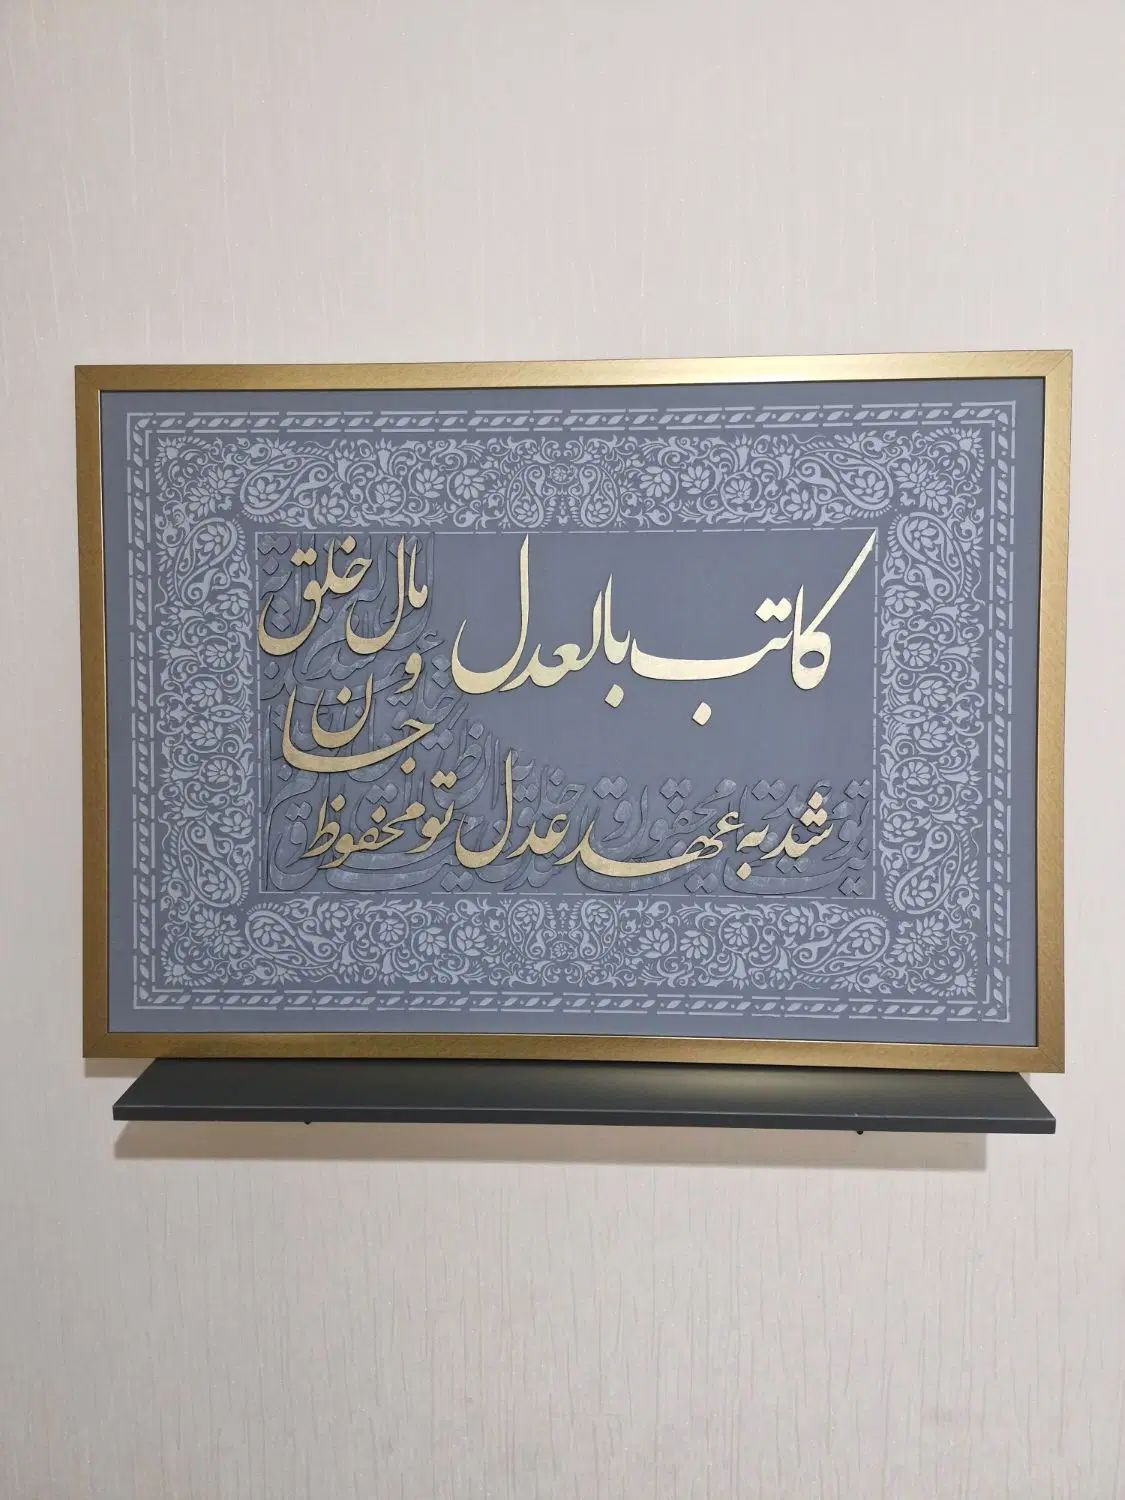 کاتب بالعدل
شد به عهد عدل تو محفوظ
جان و مال خلق